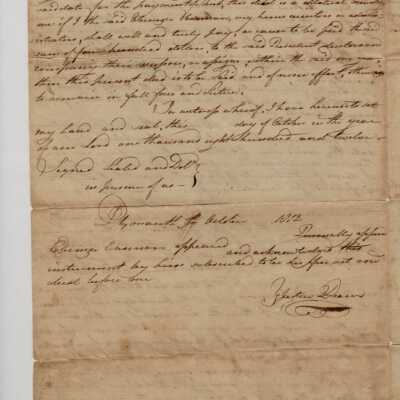 candidate for the payment
one if I the said Ebenezer my heirs executors or admin
istrators, shall well and truly pay, or cause to be paid the
sum of four hundred dollars, to the said President directors and
company their assigns, within the said one
then this present deed is to be void and of none effect, otherwise
to remain in full force and virtue.
In witness whereof, I have hereunto set
my hand and seal, this day of October in the year
of our Lord one thousand eight hundred and twelve
Signed Sealed and Del
in presence of us
Plymouth ss October 1812
Personally appear
Ebenezer appeared and acknowledged this
instrument by him subscribed to be his free act and
deed before me